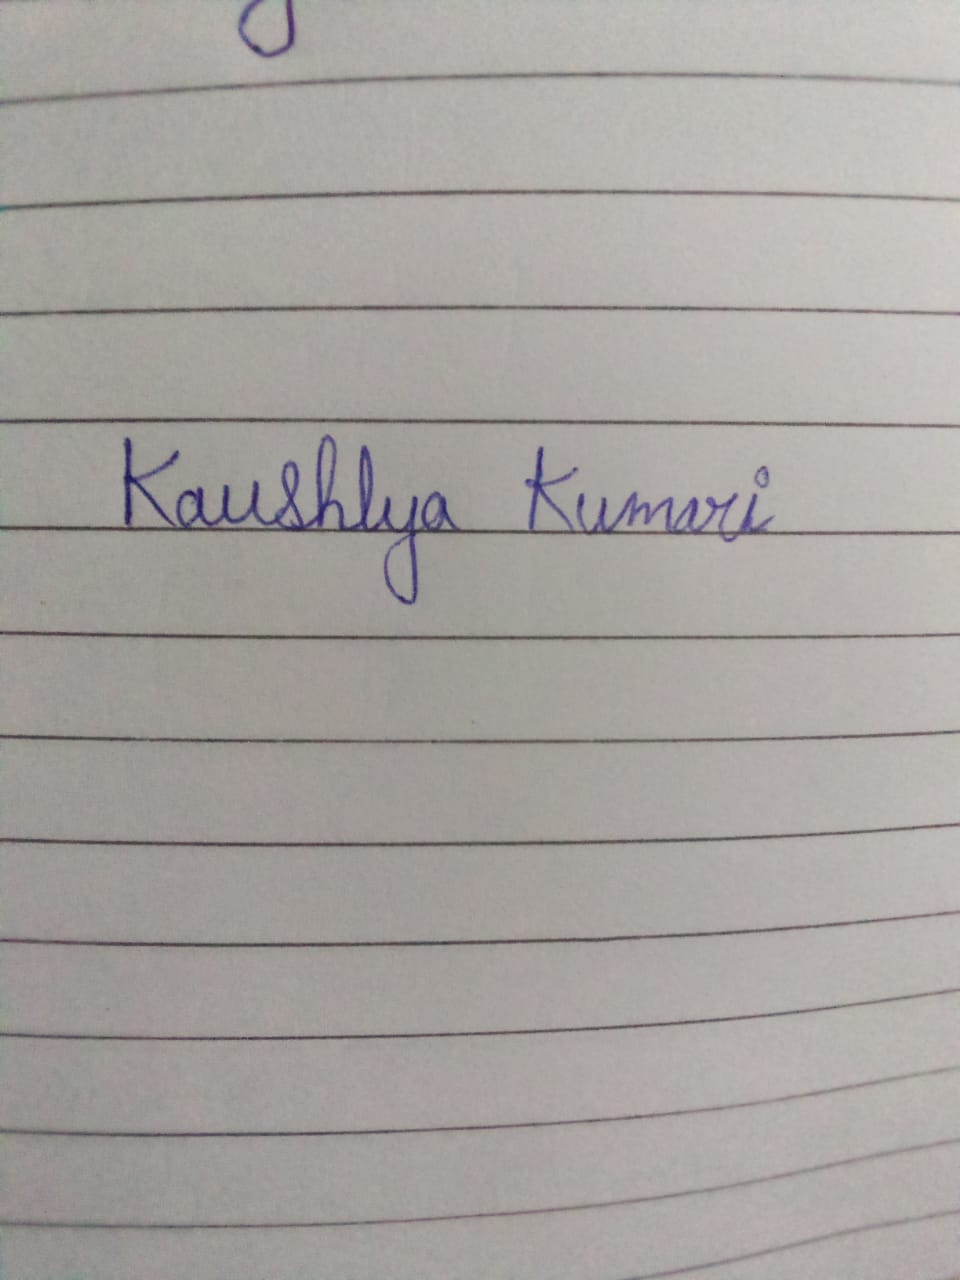 Kaushlya Kumari